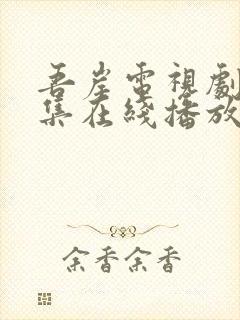 吾岸電視劇
集在綫播放
余香余香